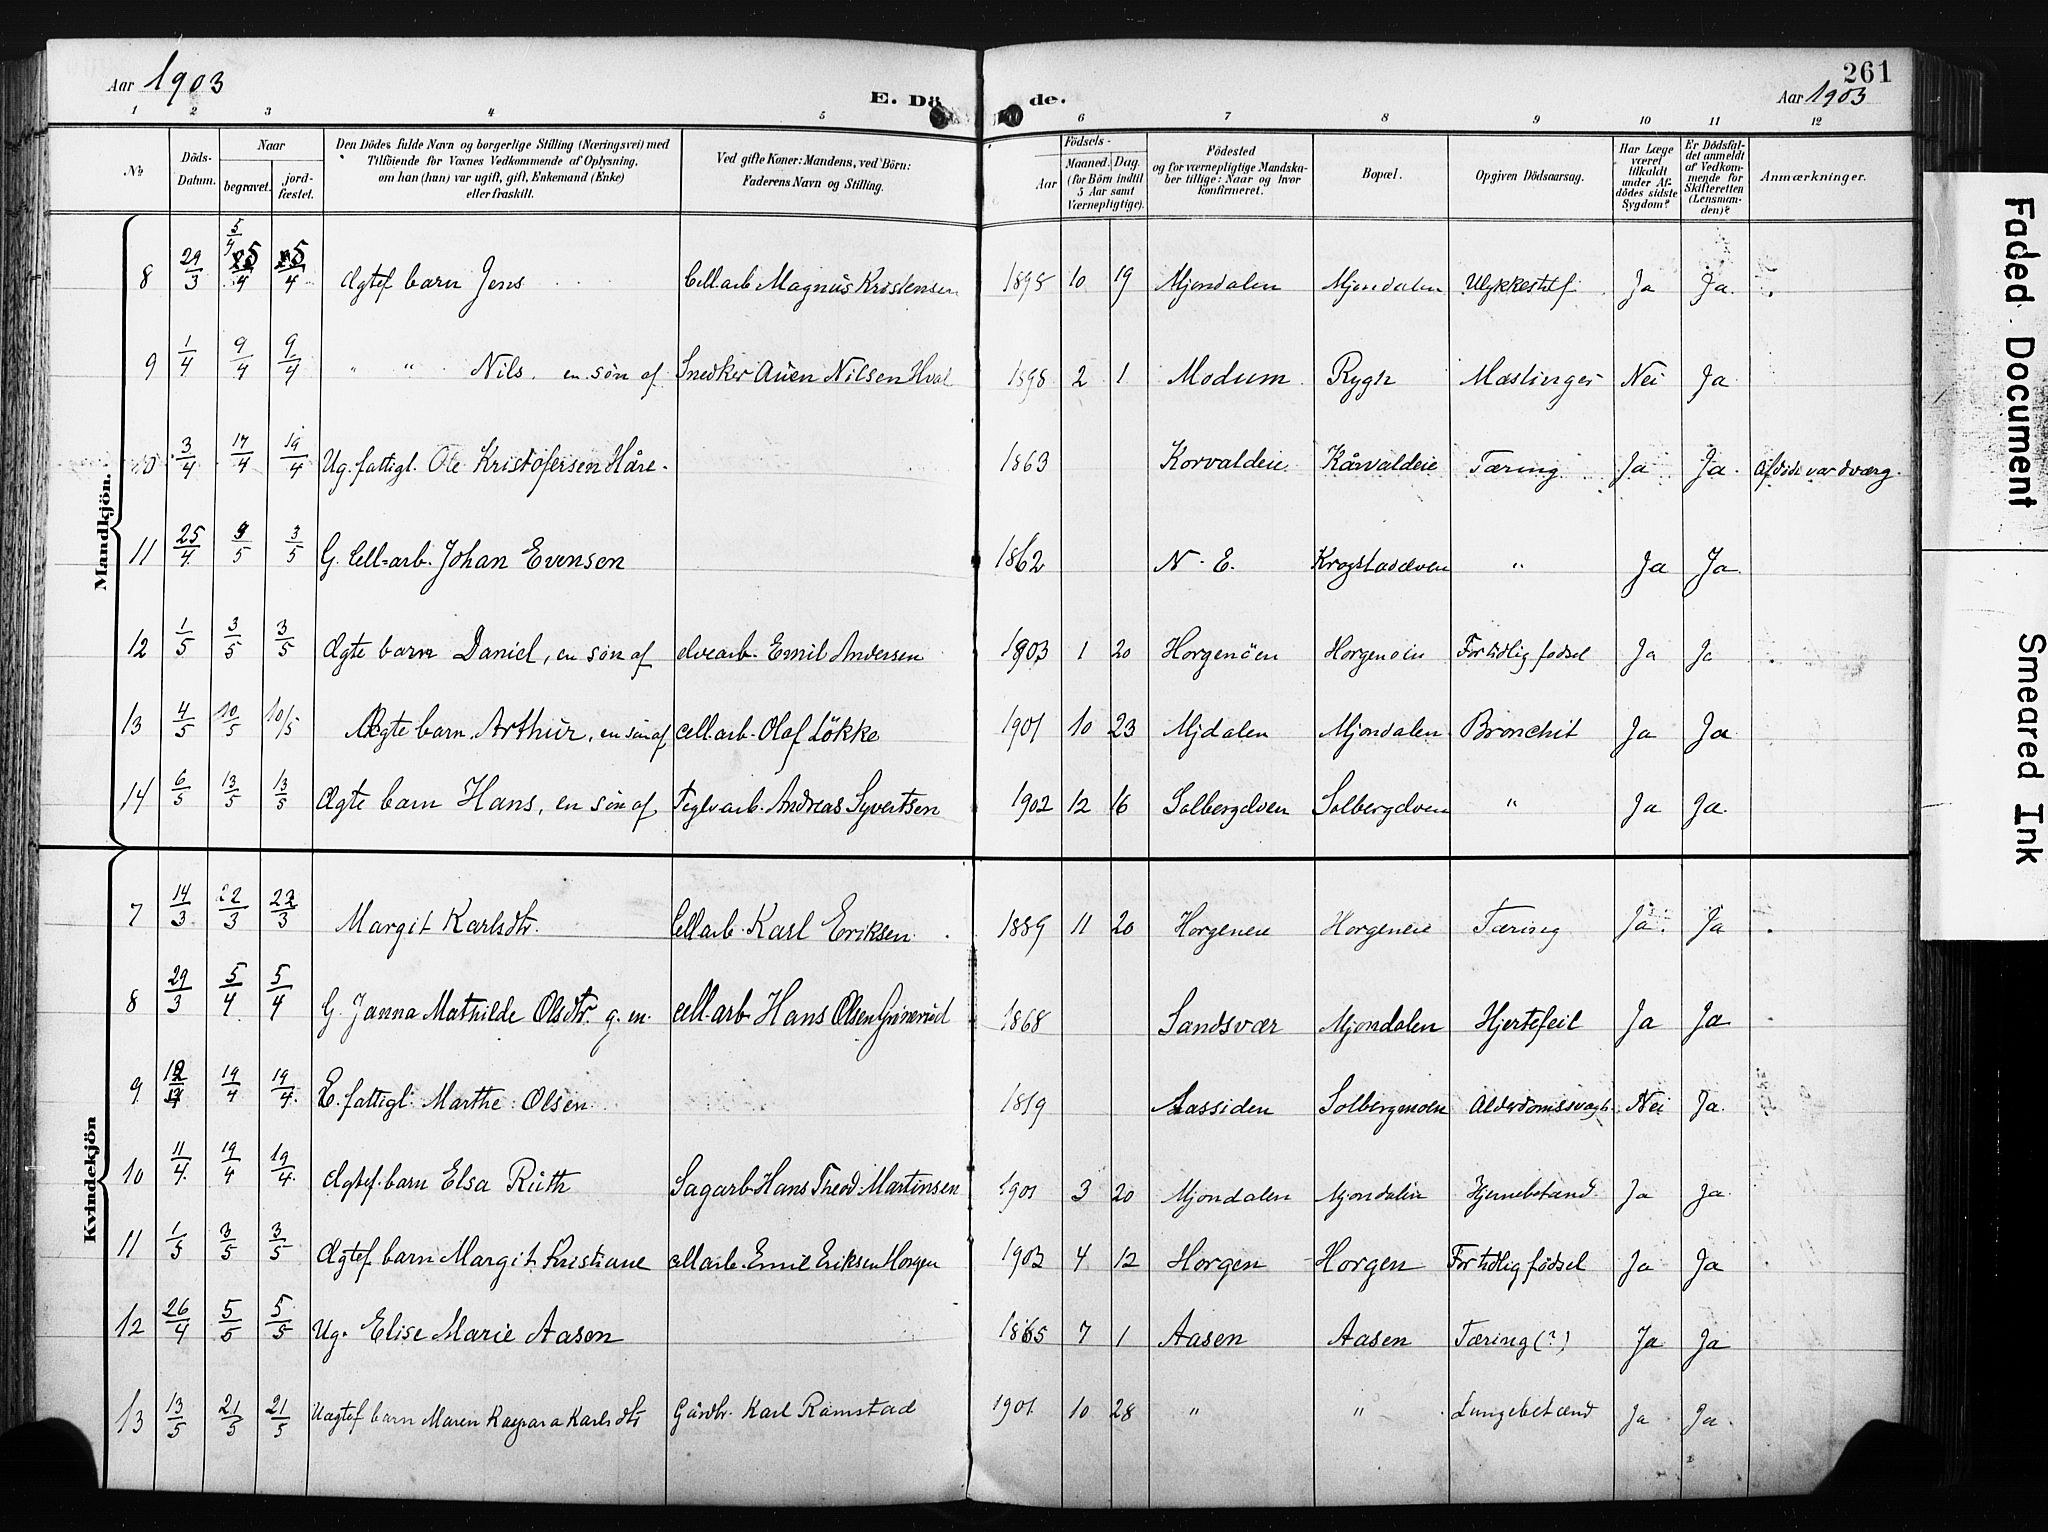 Aar 1903
E. Dö de.
261
Aar 1903
1 2 3 4 5 6 7 8 9 10 11 12
No
Döds-Datum.
Naar
begravet.
jord-fæstet.
Den Dödes fulde Navn og borgerlige Stilling (Næringsvei) med
Tilföiende for Voxnes Vedkommende af Oplysning,
om han (hun) var ugift, gift, Enkemand (Enke)
eller fraskilt.
Ved gifte Koner: Mandens, ved Börn:
Faderens Navn og Stilling.
Födsels-
Aar
Maaned. Dag.
(for Börn indtil
5 Aar samt
Værnepligtige).
Födested
og for værnepligtige Mandska-
ber tillige: Naar og hvor
konfirmeret.
Bopæl.
Opgiven Dödsaarsag.
Har Læge
været
tilkaldt
under Af-
dödes sidste
Sygdom?
Er Dödsfal-
det anmeldt
af Vedkom-
mende for
Skifteretten
(Lensman-
den)?
Anmærkninger.
Mandkjön.
8 29/3 5/4 5/4 Ægtef barn Jens Cellarb Magnus Kristensen 1898 10 19 Mjondalen Mjondalen Ulykkestilf Ja Ja
9 1/4 9/4 9/4 " " Nils, en sön af Snedker Auen Nilsen Hval 1898 2 1 Modum Rygh Mæslinger Nei Ja
10 3/4 17/4 19/4 Ug. fattigl. Ole Kristofersen Håre 1863 Korvaldeie Kårvaldeie Tæring Ja Ja Afdøde var dværg.
11 25/4 3/5 3/5 G. Cell-arb. Johan Evensen 1862 N. E. Krogstadelven " Ja Ja.
12 1/5 3/5 3/5 Ægte barn Daniel, en sön af elvearb. Emil Andersen 1903 1 20 Horgenöen Horgenoen For tidlig fødsel Ja Ja
13 4/5 10/5 10/5 Ægte barn Arthur, en sön af cell.arb. Olaf Lökke 1901 10 23 Mjdalen Mjondalen Bronchit Ja Ja
14 6/5 13/5 13/5 Ægte barn Hans, en sön af Teglvarb. Andreas Syvertsen 1902 12 16 Solbergelven Solbergelven " Ja Ja.
Kvindekjön
7 14/3 22/3 22/3 Margit Karlsdtr. Cellarb. Karl Eriksen 1889 11 20 Horgeneie Horgeneie Tæring Ja. Ja
8 29/3 5/4 5/4 G. Janna Mathilde Olsdtr. g. m. cell.arb Hans Olsen Grönerud 1868 Sandsvær Mjondalen Hjertefeil Ja Ja
9 12/4 19/4 19/4 E. fattigl. Marthe Olsen 1819 Aassiden Solbergmoen Alderdomssvagh. Nei Ja.
10 11/4 19/4 19/4 Ægtef. barn Elsa Ruth Sagarb. Hans Theod. Martinsen 1901 3 20 Mjondalen Mjondalen Hjernebetænd. Ja Ja.
11 1/5 3/5 3/5 Ægtef barn Margith Kristiane cellarb. Emil Eriksen Horgen 1903 4 12 Horgen Horgen For tidlig födsel Ja Ja
12 26/4 5/5 5/5 Ug. Elise Marie Aasen 1865 7 1 Aasen Aasen Tæring (?) Ja Ja
13 13/5 21/5 21/5 Uægtef barn Maren Kaspara Karlsdtr Gårdbr. Karl Ramstad 1901 10 28 " " Lungebetænd Ja Ja.
Faded Document
Smeared Ink